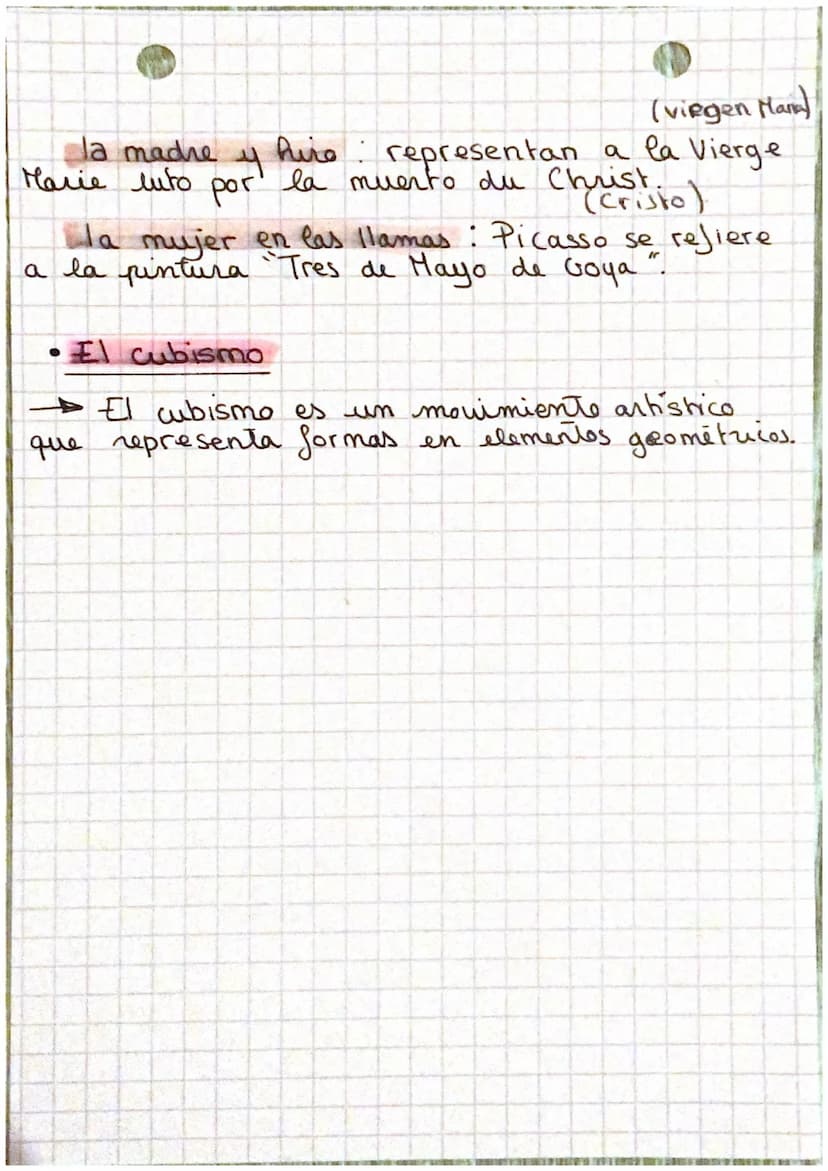 (virgen Maria)
la madre y hiro : representan a la Vierge
Marie luto por la muerto du Christ.
(Cristo)
la mujer en las llamas : Picasso se refiere
a la pintura "Tres de Mayo de Goya".
• El cubismo
→ El cubismo es un movimiento artístico
que representa formas en elementos geométricos.